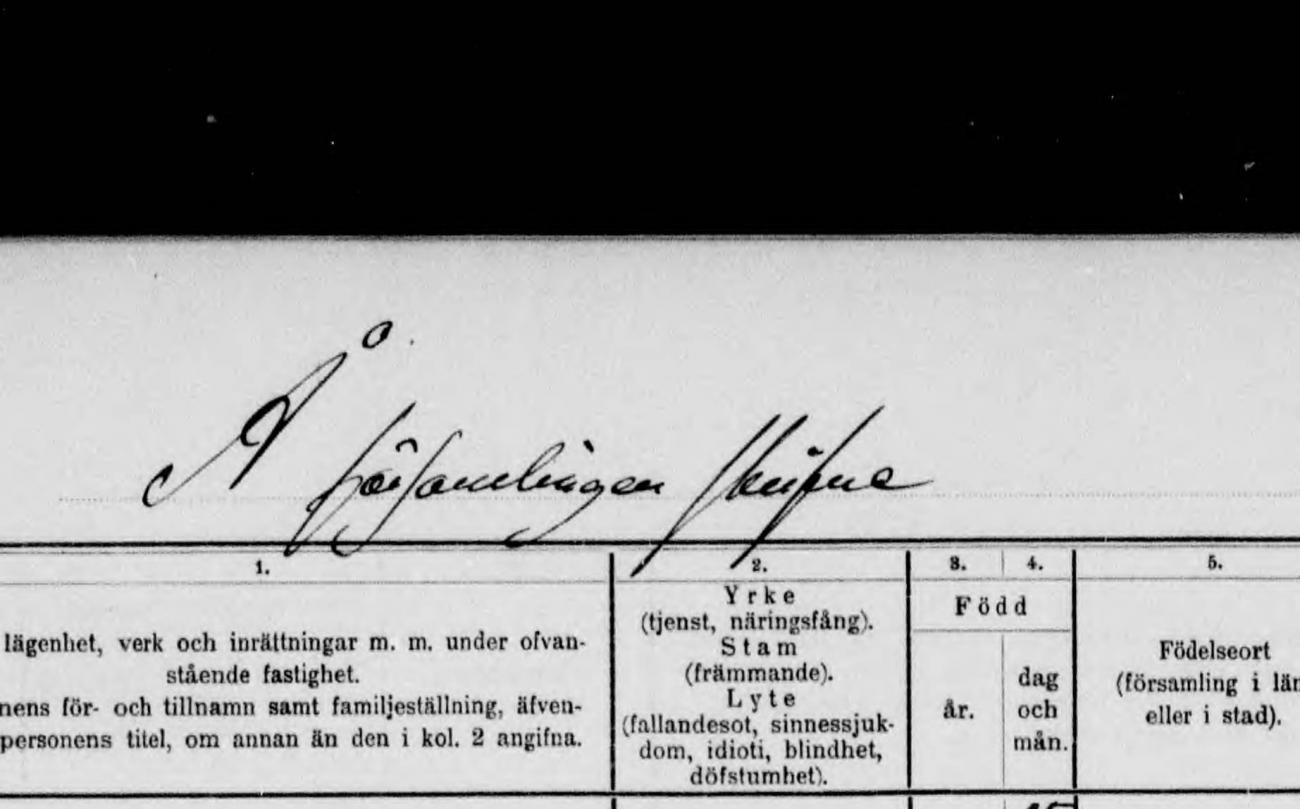 Å församlingen skrifne
1.
2.
3.
4.
5.
lägenhet, verk och inrättningar m. m. under ofvan-
stående fastighet.
nens för- och tillnamn samt familjeställning, äfven-
personens titel, om annan än den i kol. 2 angifna.
Yrke
(tjenst, näringsfång).
Stam
(främmande).
Lyte
(fallandesot, sinnessjuk-
dom, idioti, blindhet,
döfstumhet).
Född
år.
dag
och
mån.
Födelseort
(församling i län
eller i stad).